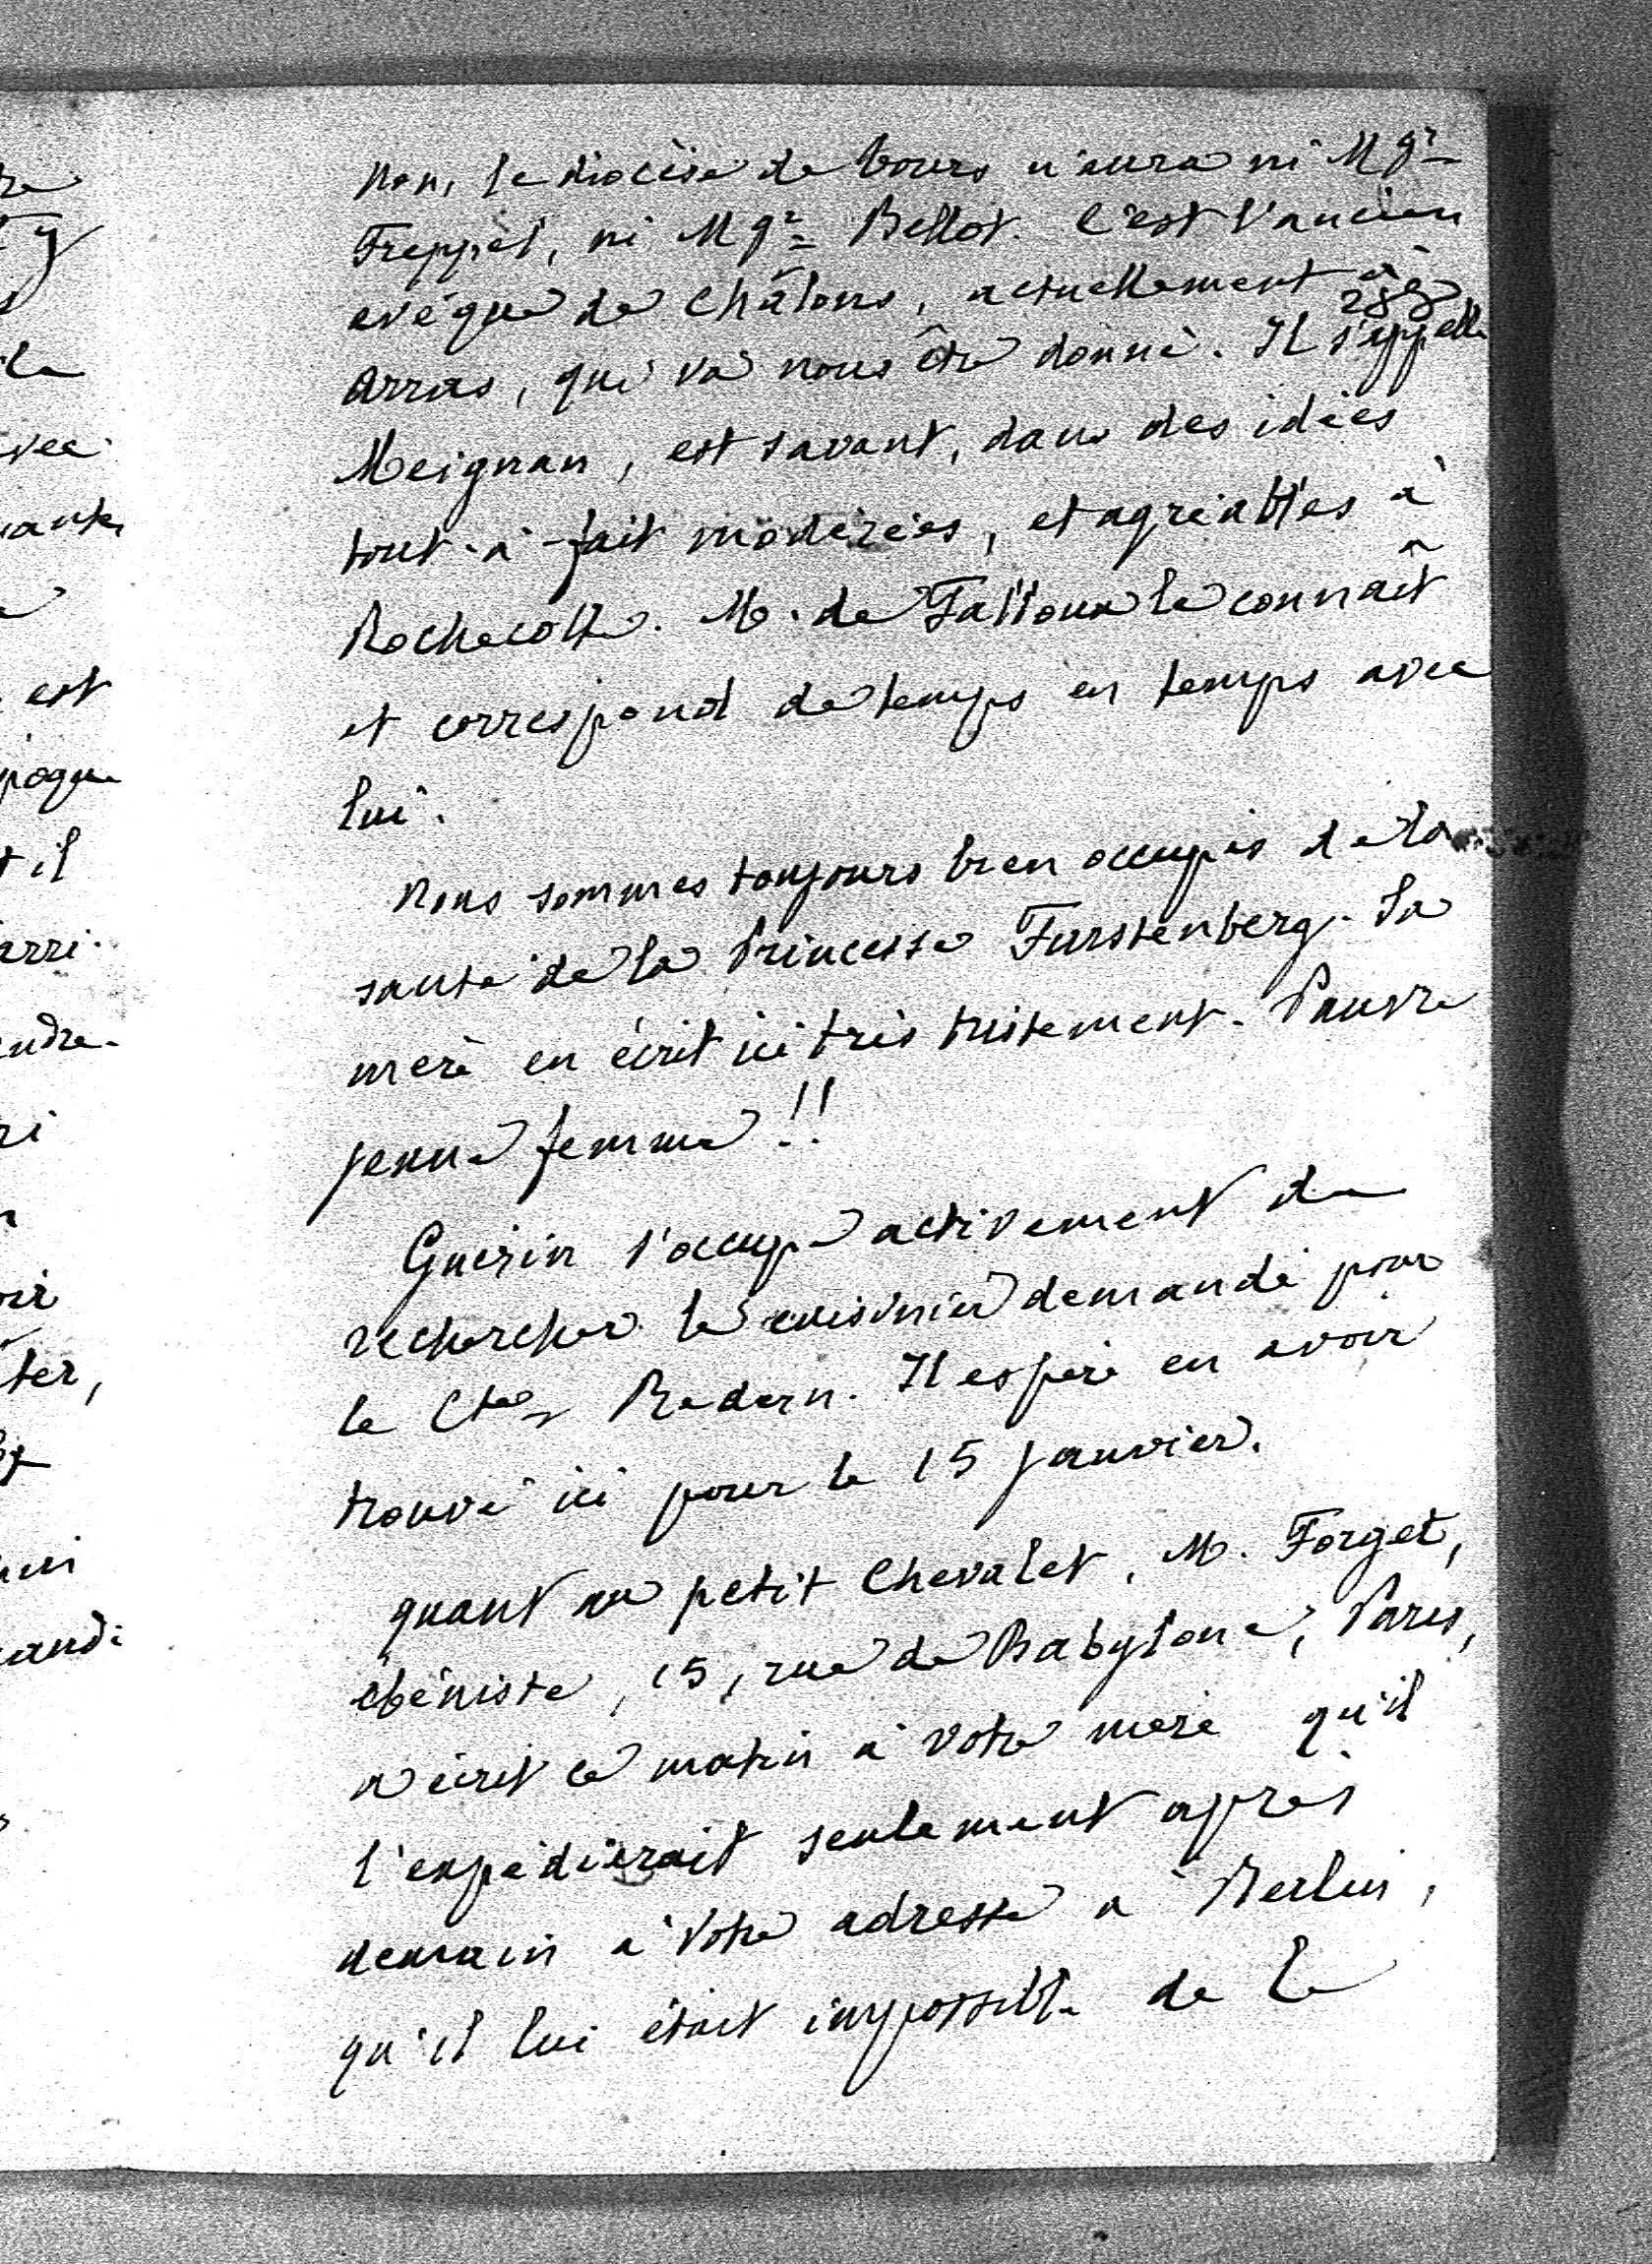 Non, le diocèse de Tours n'aura ni Mgr
Freppel, ni Mgr Bellot. C'est l'ancien
evêque de Châlons, actuellement à
288
Arras, qui va nous être donné. Il s'appelle
Meignan, est savant, dans des idées
tout-à-fait modérées, et agréables à
Rochecotte. M. de Falloux le connaît
et correspond de temps en temps avec
lui.
Nous sommes toujours bien occupés de la
santé de la Princesse Furstenberg. Sa
mère en écrit ici très tristement. Pauvre
jeune femme !!
Guérin s'occupe activement de
rechercher le cuisinier demandé pour
le Cte Redern. Il espère en avoir
trouvé ici pour le 15 Janvier.
quant au petit Chevalet, M. Forget,
ébéniste, 15, rue de Babylone, Paris,
a écrit ce matin à votre mère qu'il
l'expédierait seulement après
demain à votre adresse à Berlin,
qu'il lui était impossible de le